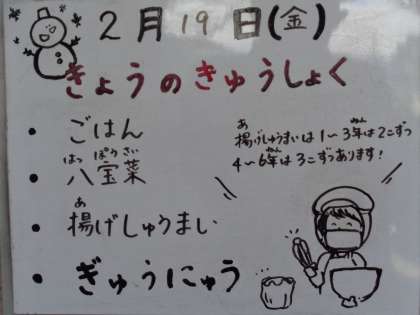 2月19日(金)
きょうのきゅうしょく
・ごはん
・八宝菜
はっぽうさい
・揚げしゅうまい
あ
・ぎゅうにゅう
揚げしゅうまいは1~3年は2こずつ
あ ねん
4~6年は3こずつあります!
ねん